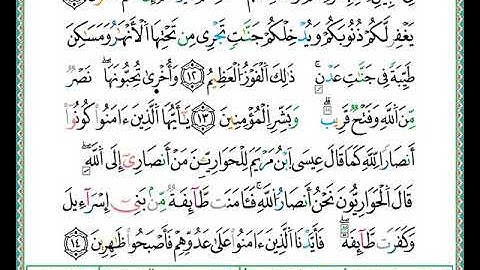 يَغْفِرْ لَكُمْ ذُنُوبَكُمْ وَيُدْخِلْكُمْ جَنَّاتٍ تَجْرِي مِن تَحْتِهَا الْأَنْهَارُ وَمَسَاكِنَ
طَيِّبَةً فِي جَنَّاتِ عَدْنٍ ۚ ذَٰلِكَ الْفَوْزُ الْعَظِيمُ ﴿١٢﴾ وَأُخْرَىٰ تُحِبُّونَهَا ۖ نَصْرٌ
مِّنَ اللَّهِ وَفَتْحٌ قَرِيبٌ ۗ وَبَشِّرِ الْمُؤْمِنِينَ ﴿١٣﴾ يَا أَيُّهَا الَّذِينَ ءَامَنُوا كُونُوا
أَنصَارَ اللَّهِ كَمَا قَالَ عِيسَى ابْنُ مَرْيَمَ لِلْحَوَارِيِّينَ مَنْ أَنصَارِي إِلَى اللَّهِ ۖ
قَالَ الْحَوَارِيُّونَ نَحْنُ أَنصَارُ اللَّهِ ۖ فَـَٔامَنَت طَّآئِفَةٌ مِّن بَنِي إِسْرَآءِيلَ
وَكَفَرَت طَّآئِفَةٌ ۖ فَأَيَّدْنَا الَّذِينَ ءَامَنُوا عَلَىٰ عَدُوِّهِمْ فَأَصْبَحُوا ظَاهِرِينَ ﴿١٤﴾